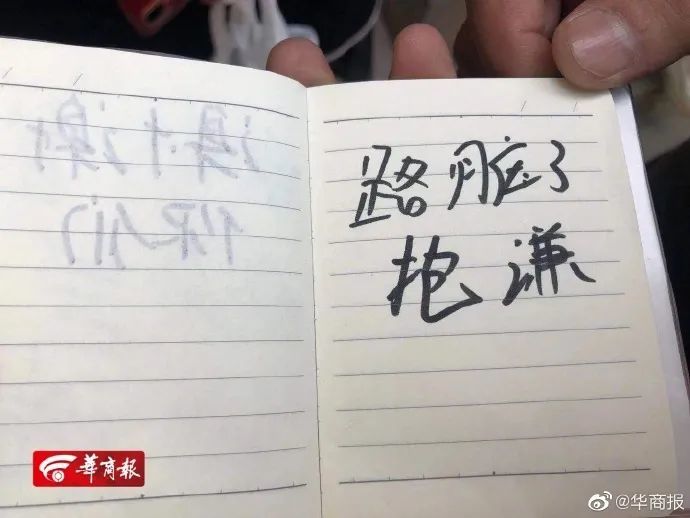 路脏了
抱谦
華商報
@华商报